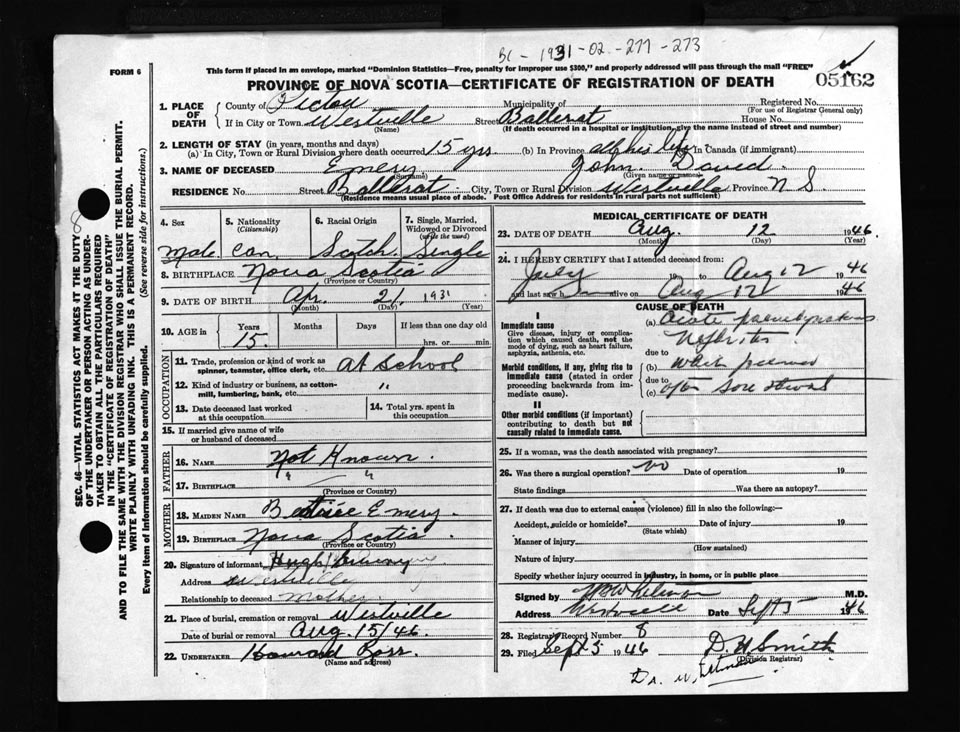 BC - 1931-02-277-273
FORM 6
This form if placed in an envelope, marked "Dominion Statistics—Free, penalty for improper use $300," and properly addressed will pass through the mail "FREE"
PROVINCE OF NOVA SCOTIA—CERTIFICATE OF REGISTRATION OF DEATH
05162
1. PLACE OF DEATH
County of Pictou Municipality of Registered No.
(For use of Registrar General only)
If in City or Town Westville Street Ballerat House No.
(Name) (If death occurred in a hospital or institution, give the name instead of street and number)
2. LENGTH OF STAY (in years, months and days)
(a) In City, Town or Rural Division where death occurred 15 yrs (b) In Province all his life In Canada (if immigrant)
3. NAME OF DECEASED Emery John David
(Surname) (Given name or names)
RESIDENCE No. Street Ballerat City, Town or Rural Division Westville Province N S.
(Residence means usual place of abode. Post Office Address for residents in rural parts not sufficient)
4. Sex
Male
5. Nationality (Citizenship)
Can
6. Racial Origin
Scotch
7. Single, Married, Widowed or Divorced (write the word)
Single
8. BIRTHPLACE Nova Scotia
(Province or Country)
9. DATE OF BIRTH Apr. 21 1931
(Month) (Day) (Year)
10. AGE in Years Months Days If less than one day old
15 hrs. or min.
OCCUPATION
11. Trade, profession or kind of work as spinner, teamster, office clerk, etc. At School
12. Kind of industry or business, as cotton-mill, lumbering, bank, etc. "
13. Date deceased last worked at this occupation
14. Total yrs. spent in this occupation
15. If married give name of wife or husband of deceased
FATHER
16. NAME Not Known.
17. BIRTHPLACE " "
(Province or Country)
MOTHER
18. MAIDEN NAME Beatrice Emery.
19. BIRTHPLACE Nova Scotia.
(Province or Country)
20. Signature of informant, Hugh Emery
Address Westville
Relationship to deceased Mother
21. Place of burial, cremation or removal Westville
Date of burial or removal Aug. 15/46.
22. UNDERTAKER Howard Ross.
(Name and address)
MEDICAL CERTIFICATE OF DEATH
23. DATE OF DEATH Aug. 12 1946
(Month) (Day) (Year)
24. I HEREBY CERTIFY that I attended deceased from:
July 19 to Aug 12 1946
and last saw h im alive on Aug 12 1946
CAUSE OF DEATH
I
Immediate cause
Give disease, injury or complication which caused death, not the mode of dying, such as heart failure, asphyxia, asthenia, etc.
Morbid conditions, if any, giving rise to immediate cause (stated in order proceeding backwards from immediate cause).
II
Other morbid conditions (if important) contributing to death but not causally related to immediate cause.
(a) Acute
Nephritis
due to
(b) which
due to
(c) after sore throat
25. If a woman, was the death associated with pregnancy?
26. Was there a surgical operation? no Date of operation 19
State findings Was there an autopsy?
27. If death was due to external causes (violence) fill in also the following:—
Accident, suicide or homicide? Date of injury 19
(State which)
Manner of injury
(How sustained)
Nature of injury
Specify whether injury occurred in industry, in home, or in public place
Signed by M.D.
Address Westville Date Sept 5 1946
28. Registrar Record Number 8
29. Filed Sept 5 1946 D. H. Smith
(Division Registrar)
Dr. W.
SEC. 46—VITAL STATISTICS ACT MAKES IT THE DUTY
OF THE UNDERTAKER OR PERSON ACTING AS UNDERTAKER TO OBTAIN ALL THE PARTICULARS REQUIRED
IN THE "CERTIFICATE OF REGISTRATION OF DEATH"
AND TO FILE THE SAME WITH THE DIVISION REGISTRAR WHO SHALL ISSUE THE BURIAL PERMIT.
WRITE PLAINLY WITH UNFADING INK. THIS IS A PERMANENT RECORD.
Every item of information should be carefully supplied. (See reverse side for instructions.)
8